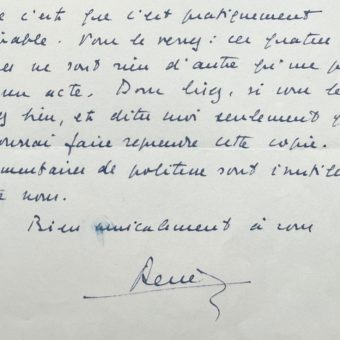 e c'est que c'est pratiquement
iable. Vous le verrez : ces quatre
es ne sont rien d'autre qu'une p
un acte. Donc lisez, si vous le
z bien, et dites moi seulement q
ourrai faire reprendre cette copie.
mentaires de politesse sont inutile
e nous.
Bien amicalement à vous
René